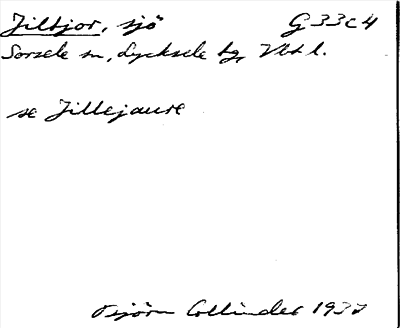 Jiltjor, sjö G 33c4
Sorsele sn, Lycksele tg, Vbt l.
se Jillejaure
Björn Collinder 1937